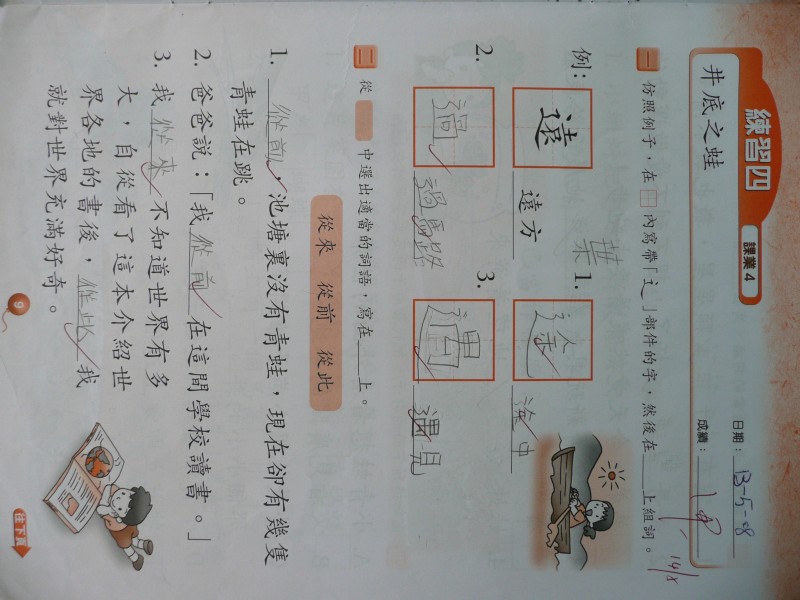 練習四
課業4
井底之蛙
日期：13-5-08
成績：
14/5
一 仿照例子，在 內寫帶「辶」部件的字，然後在 上組詞。
例：遠 遠方
葉
1. 途 途中
2. 過 過馬路
3. 遇 遇見
二 從 中選出適當的詞語，寫在 上。
從來 從前 從此
1. 從前，池塘裏沒有青蛙，現在卻有幾隻
青蛙在跳。
2. 爸爸說：「我從前在這間學校讀書。」
3. 我從來不知道世界有多
大，自從看了這本介紹世
界各地的書後，從此我
就對世界充滿好奇。
9
往下頁